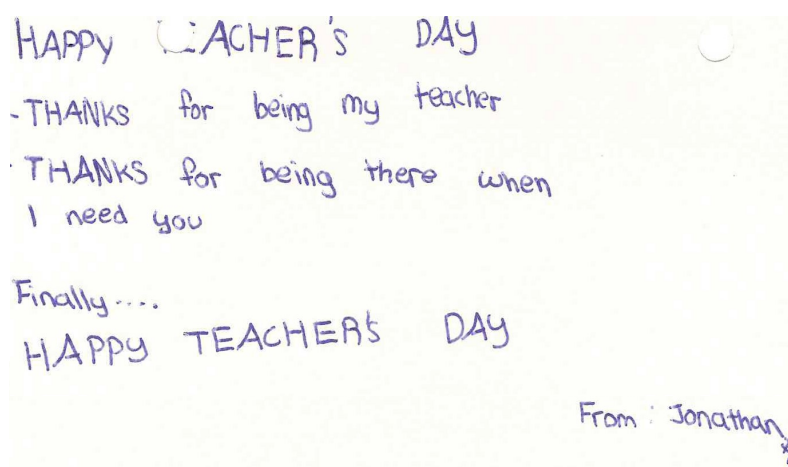 HAPPY TEACHER'S DAY
-THANKS for being my teacher
-THANKS for being there when
I need you
Finally....
HAPPY TEACHER'S DAY
From: Jonathan